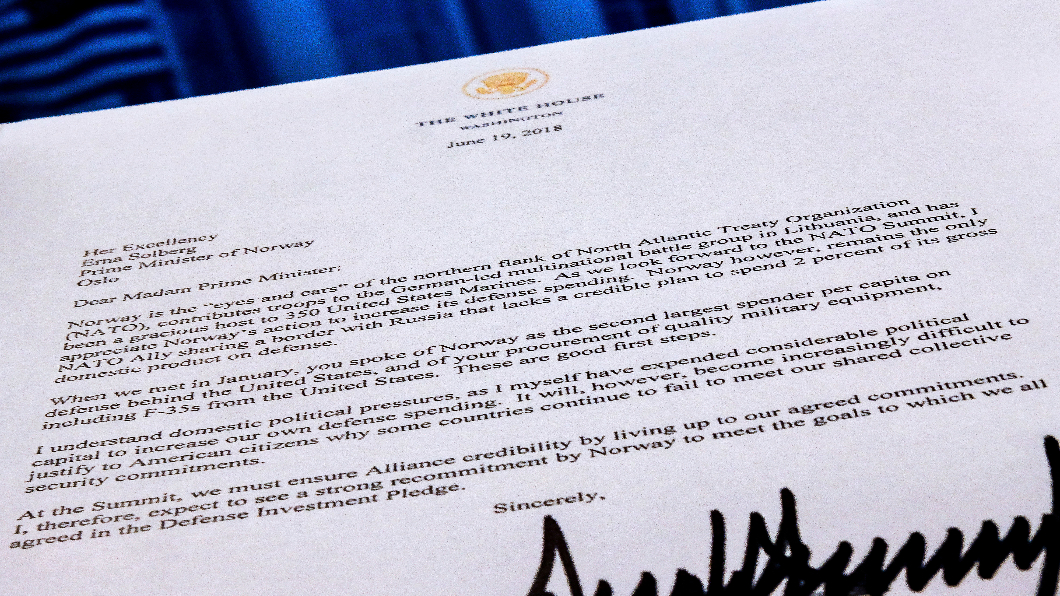 THE WHITE HOUSE
WASHINGTON
June 19, 2018
Her Excellency
Erna Solberg
Prime Minister of Norway
Oslo
Dear Madam Prime Minister:
Norway is the "eyes and ears" of the northern flank of North Atlantic Treaty Organization
(NATO), contributes troops to the German-led multinational battle group in Lithuania, and has
been a gracious host to 350 United States Marines. As we look forward to the NATO Summit, I
appreciate Norway's action to increase its defense spending. Norway however, remains the only
NATO Ally sharing a border with Russia that lacks a credible plan to spend 2 percent of its gross
domestic product on defense.
When we met in January, you spoke of Norway as the second largest spender per capita on
defense behind the United States, and of your procurement of quality military equipment,
including F-35s from the United States. These are good first steps.
I understand domestic political pressures, as I myself have expended considerable political
capital to increase our own defense spending. It will, however, become increasingly difficult to
justify to American citizens why some countries continue to fail to meet our shared collective
security commitments.
At the Summit, we must ensure Alliance credibility by living up to our agreed commitments.
I, therefore, expect to see a strong recommitment by Norway to meet the goals to which we all
agreed in the Defense Investment Pledge.
Sincerely,